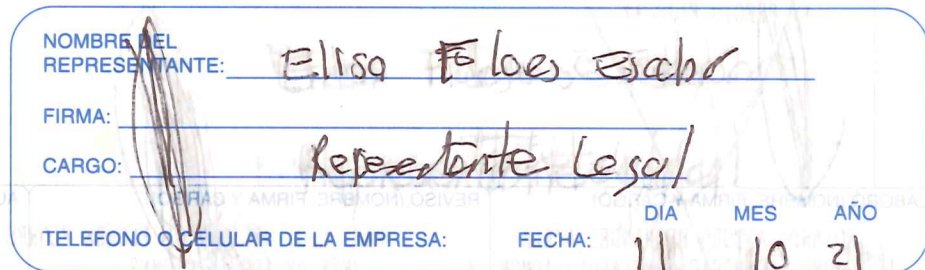 NOMBRE DEL
REPRESENTANTE: Elisa Floes Escobr
FIRMA:
CARGO: Repesentante Legal
DIA MES AÑO
TELEFONO O CELULAR DE LA EMPRESA: FECHA: 11 10 21